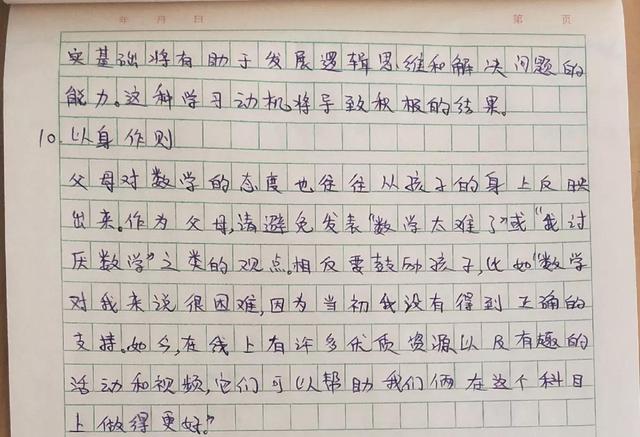 年 月 日 第 页
实基础将有助于发展逻辑思维和解决问题的
能力。这种学习动机将导致积极的结果。
10.以身作则
父母对数学的态度也往往从孩子的身上反映
出来。作为父母,请避免发表“数学太难了”或“我讨
厌数学”之类的观点。相反要鼓励孩子,比如“数学
对我来说很困难,因为当初我没有得到正确的
支持。如今,在线上有许多优质资源以及有趣的
活动和视频,它们可以帮助我们俩在这个科目
上做得更好。”